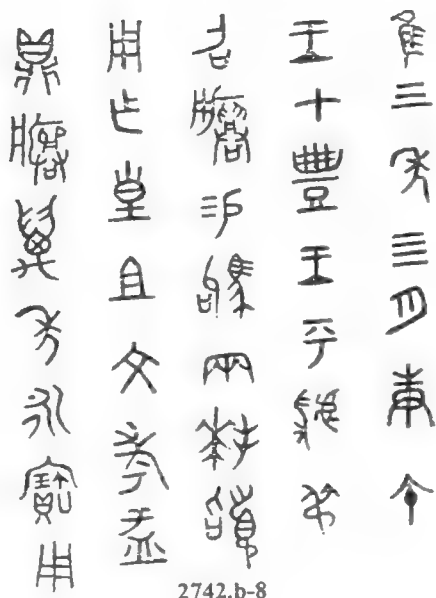 隹三年四月庚午
王才豐王乎虢弔
召𤼈易駒兩拜𩒨
用乍皇且文考盂
鼎𤼈萬年永寶用
2742.b-8